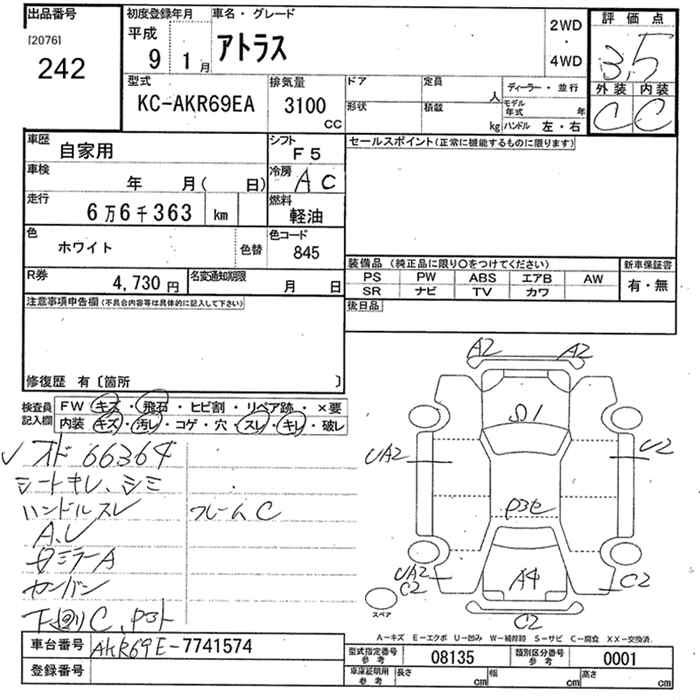 出品番号
[2076]
242
初度登録年月
平成
9 1月
車名・グレード
アトラス
2WD
・
4WD
評価点
3.5
外装 内装
C C
型式
KC-AKR69EA
排気量
3100
CC
ドア
定員
人
形状
積載
kg
ディーラー・並行
モデル年式
年
ハンドル 左・右
車歴
自家用
シフト
F5
車検
年 月( 日)
冷房
AC
走行
6万6千363 km
燃料
軽油
色
ホワイト
色替
色コード
845
R券
4,730円
名変通知期限
月 日
セールスポイント(正常に機能するものに限ります)
装備品 (純正品に限り○をつけてください)
PS PW ABS エアB AW
SR ナビ TV カワ
新車保証書
有・無
後日品
注意事項申告欄(不具合内容等は具体的に記入して下さい)
修復歴 有〔箇所 〕
検査員記入欄
FW キズ・飛石・ヒビ割・リペア跡・×要
内装 キズ・汚レ・コゲ・穴・スレ・キレ・破レ
✓オド 66364
シートキレ、シミ
ハンドルスレ
フレームC
A.U
ミラーA
カンバン
下廻りC、P3ト
A2 A2
S1
UA2 U2
P3セ
UA2
C2
A4
C2
C2
スペア
A-キズ E-エクボ U-凹み W-補修跡 S-サビ C-腐食 XX-交換済
車台番号
AKR69E-7741574
登録番号
型式指定番号
参考
08135
類別区分番号
参考
0001
車庫証明用
参考
長さ cm
幅 cm
高さ cm